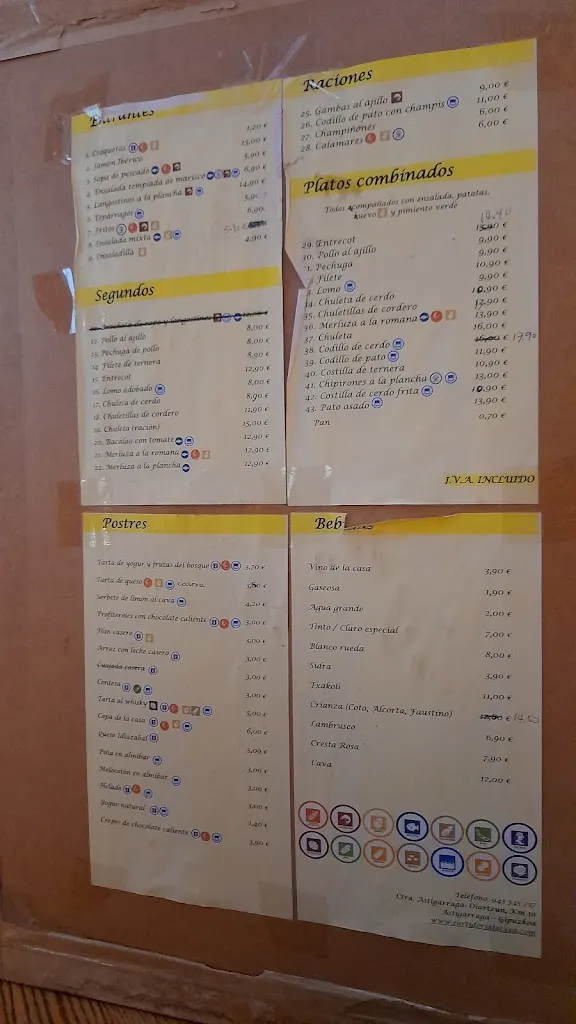 Entrantes
1. Croquetas 1,20 €
2. Jamón Ibérico 13,00 €
3. Sopa de pescado 5,90 €
4. Ensalada templada de marisco 6,90 €
5. Langostinos a la plancha 14,90 €
6. Espárragos 5,90
7. Fritos 6,90
8. Ensalada mixta
9. Ensaladilla 4,90 €
Segundos
12. Pollo al ajillo 8,00 €
13. Pechuga de pollo 8,00 €
14. Filete de ternera 8,90 €
15. Entrecot 12,90 €
16. Lomo adobado 8,00 €
17. Chuleta de cerdo 8,90 €
18. Chuletillas de cordero 11,90 €
19. Chuleta (ración) 15,00 €
20. Bacalao con tomate 12,90 €
21. Merluza a la romana 12,90 €
22. Merluza a la plancha 12,90 €
Raciones
25. Gambas al ajillo 9,00 €
26. Codillo de pato con champis 11,00 €
27. Champiñones 6,00 €
28. Calamares 6,00 €
Platos combinados
Todos acompañados con ensalada, patatas,
huevo y pimiento verde
29. Entrecot
30. Pollo al ajillo 9,90 €
31. Pechuga 9,90 €
Filete 10,90 €
Lomo 9,90 €
34. Chuleta de cerdo 10,90 €
35. Chuletillas de cordero
36. Merluza a la romana 13,90 €
37. Chuleta 16,00 €
38. Codillo de cerdo € 17,90
39. Codillo de pato 11,90 €
40. Costilla de ternera 10,90 €
41. Chipirones a la plancha 13,00 €
42. Costilla de cerdo frita 10,90 €
43. Pato asado 13,90 €
Pan 0,70 €
I.V.A. INCLUIDO
Postres
Tarta de yogur y frutas del bosque 3,70 €
Tarta de queso casera
Sorbete de limón al cava 4,20 €
Profiteroles con chocolate caliente 3,00 €
Flan casero 3,00 €
Arroz con leche casero 3,00 €
Cuajada casera 3,00 €
Contesa 3,00 €
Tarta al whisky 5,00 €
Copa de la casa 6,00 €
Queso Idiazabal 5,00 €
Piña en almíbar 3,00 €
Melocotón en almíbar 3,00 €
Helado 3,00 €
Yogur natural 1,40 €
Crepes de chocolate caliente 3,90 €
Beb
Vino de la casa 3,90 €
Gaseosa 1,90 €
Agua grande 2,00 €
Tinto / Claro especial 7,00 €
Blanco rueda 8,00 €
Sidra 3,90 €
Txakoli 11,00 €
Crianza (Coto, Alcorta, Faustino) 12,50 € 14,50
Lambrusco 6,90 €
Cresta Rosa 7,90 €
Cava 12,00 €
Teléfono: 943
Ctra. Astigarraga-Oiartzun, Km 10
Astigarraga - Gipuzkoa